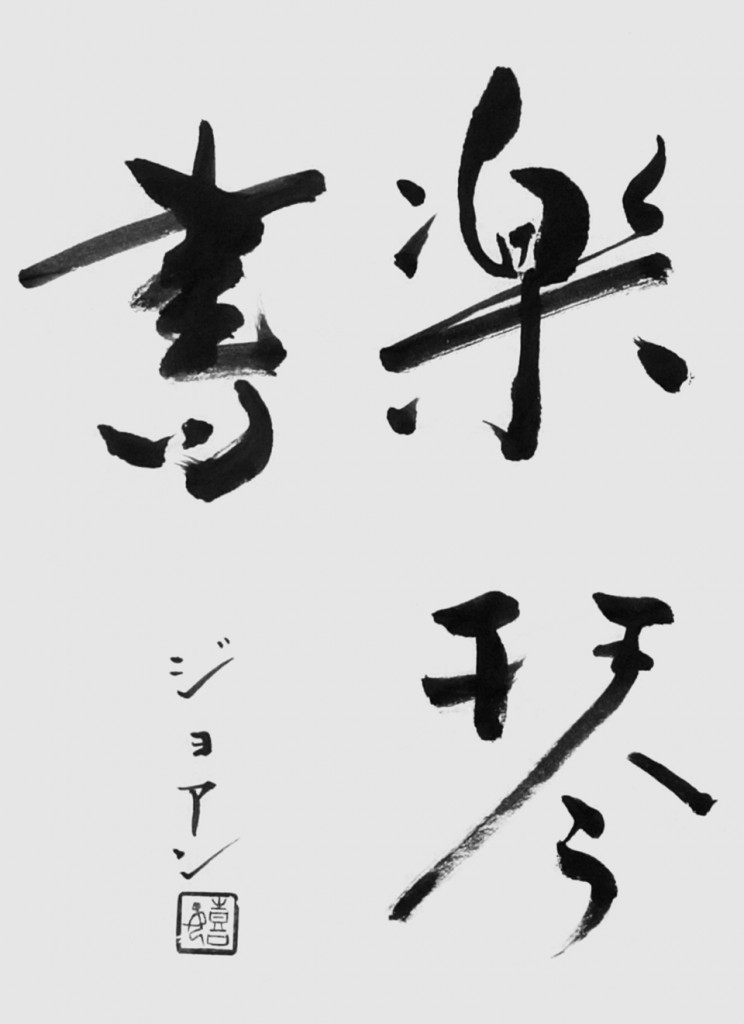 楽琴
書
ジョアン